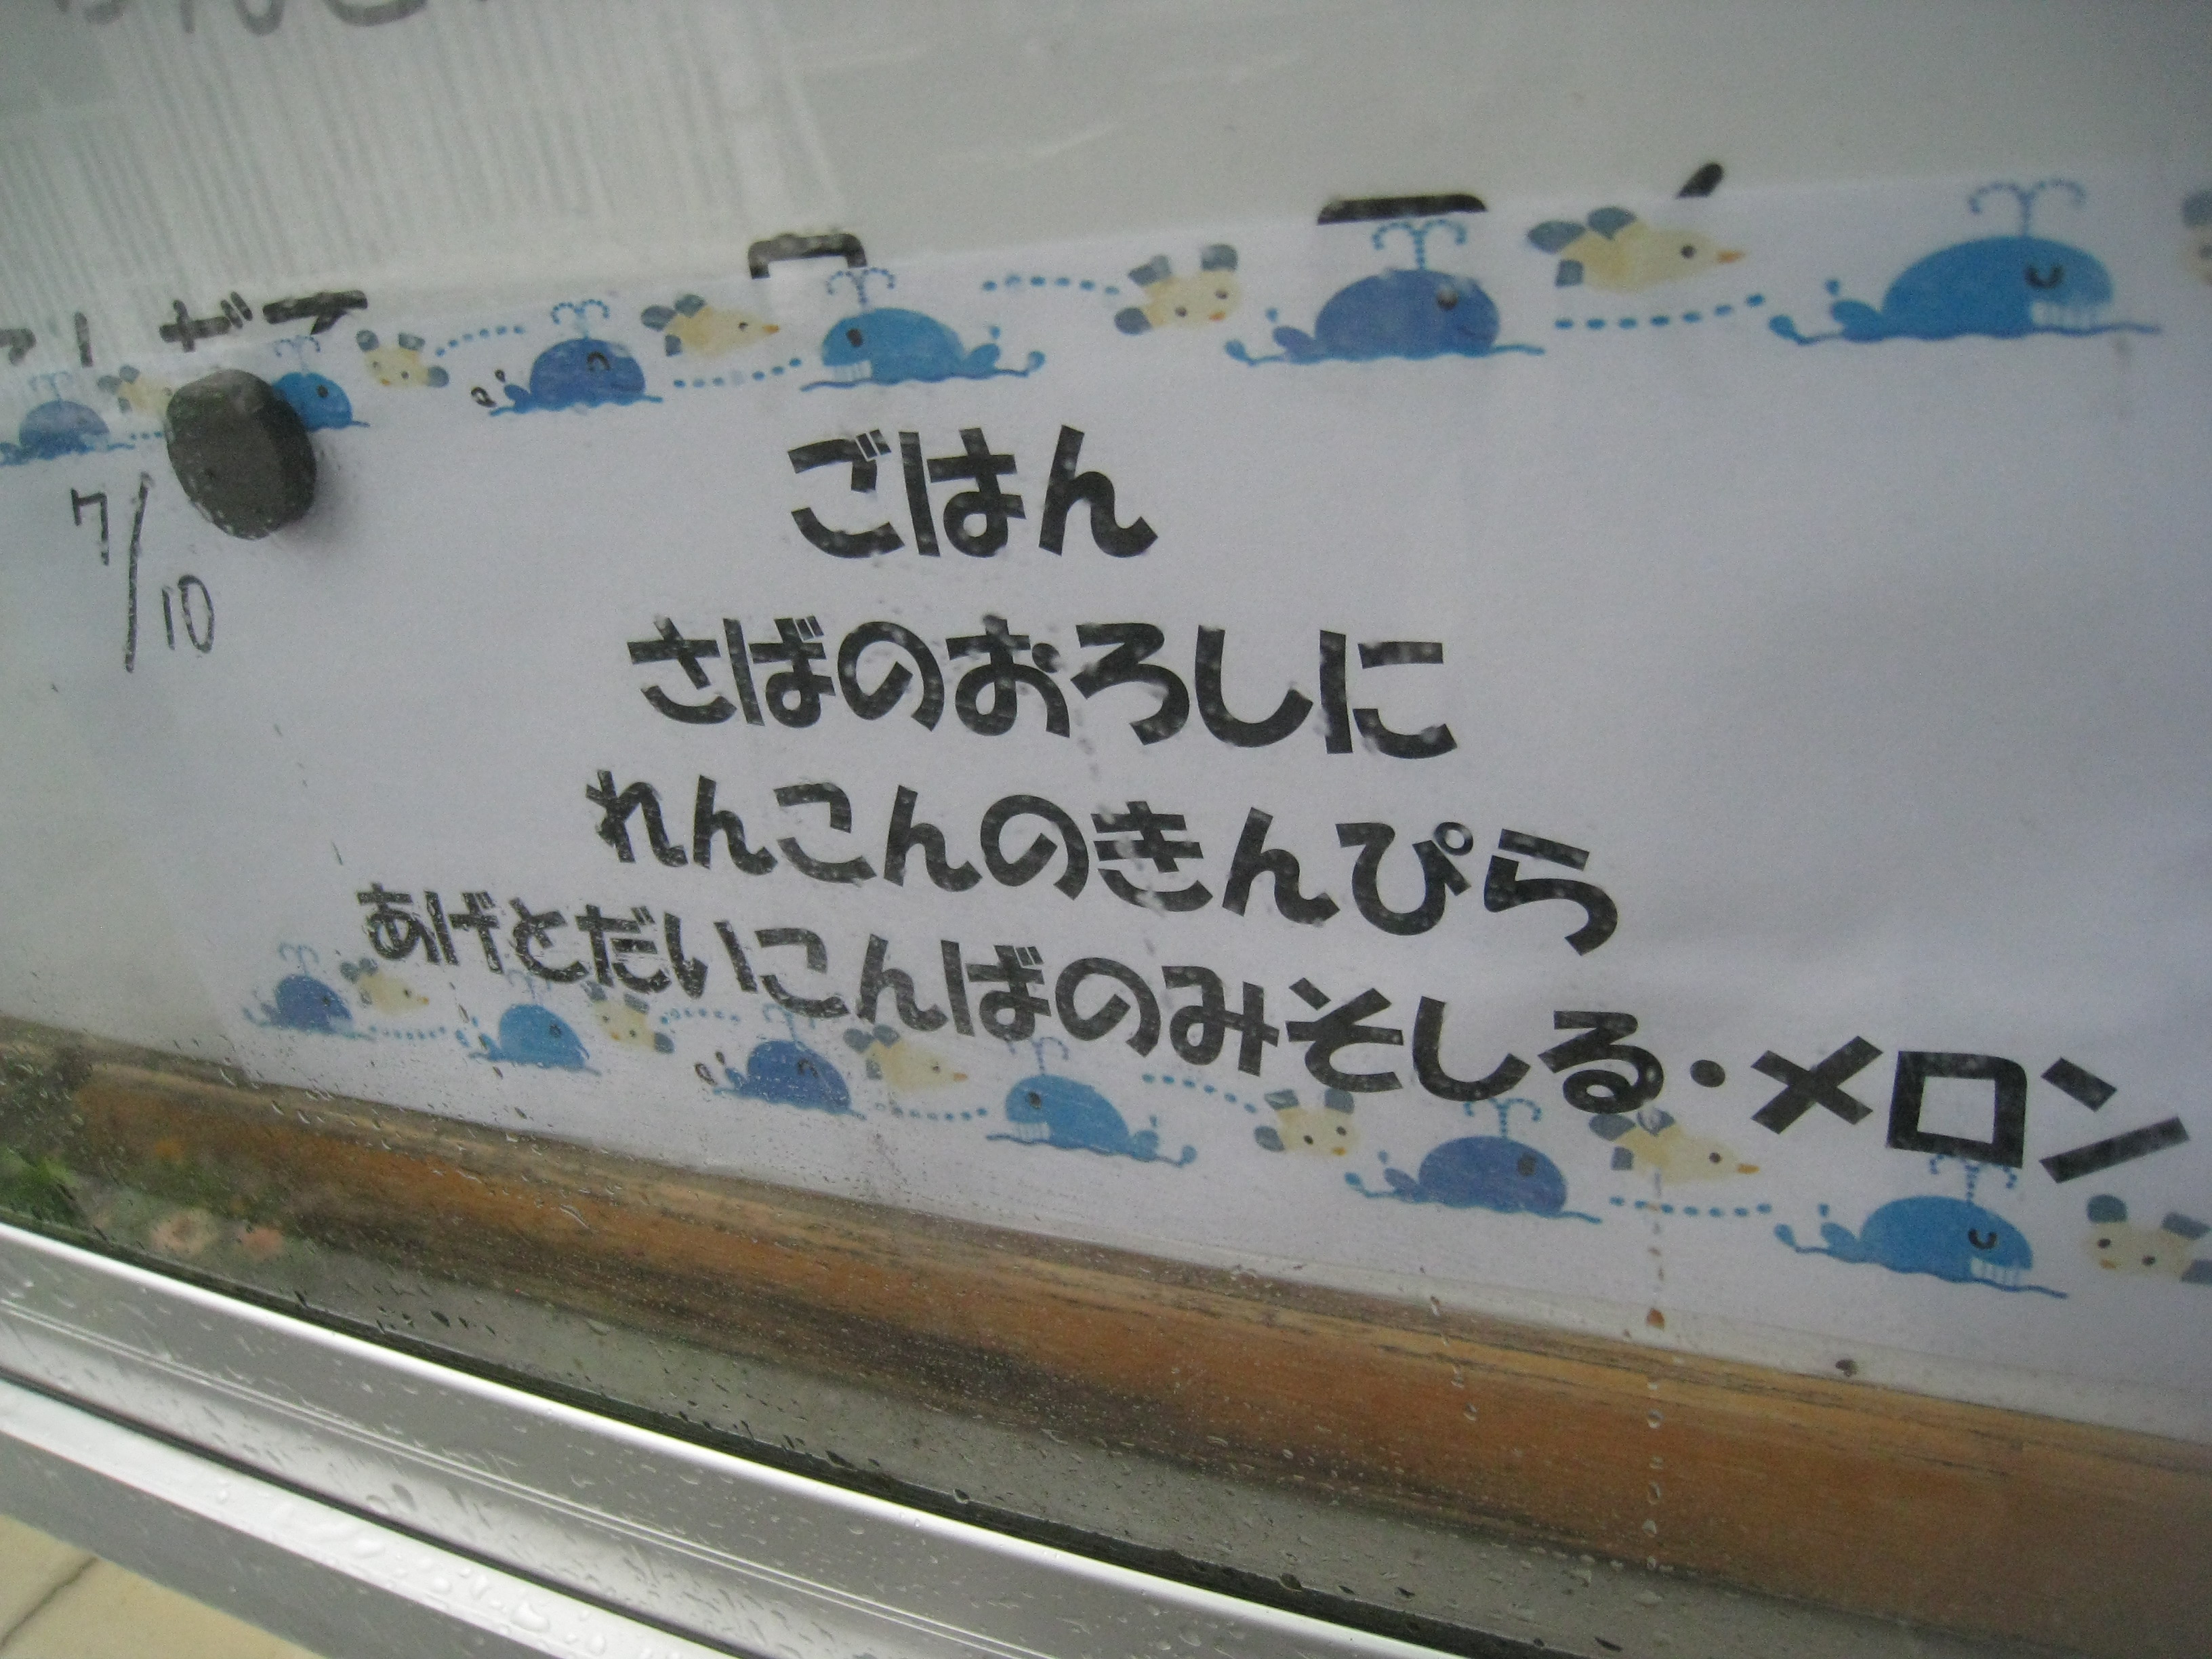 7/10
ごはん
さばのおろしに
れんこんのきんぴら
あげとだいこんばのみそしる・メロン